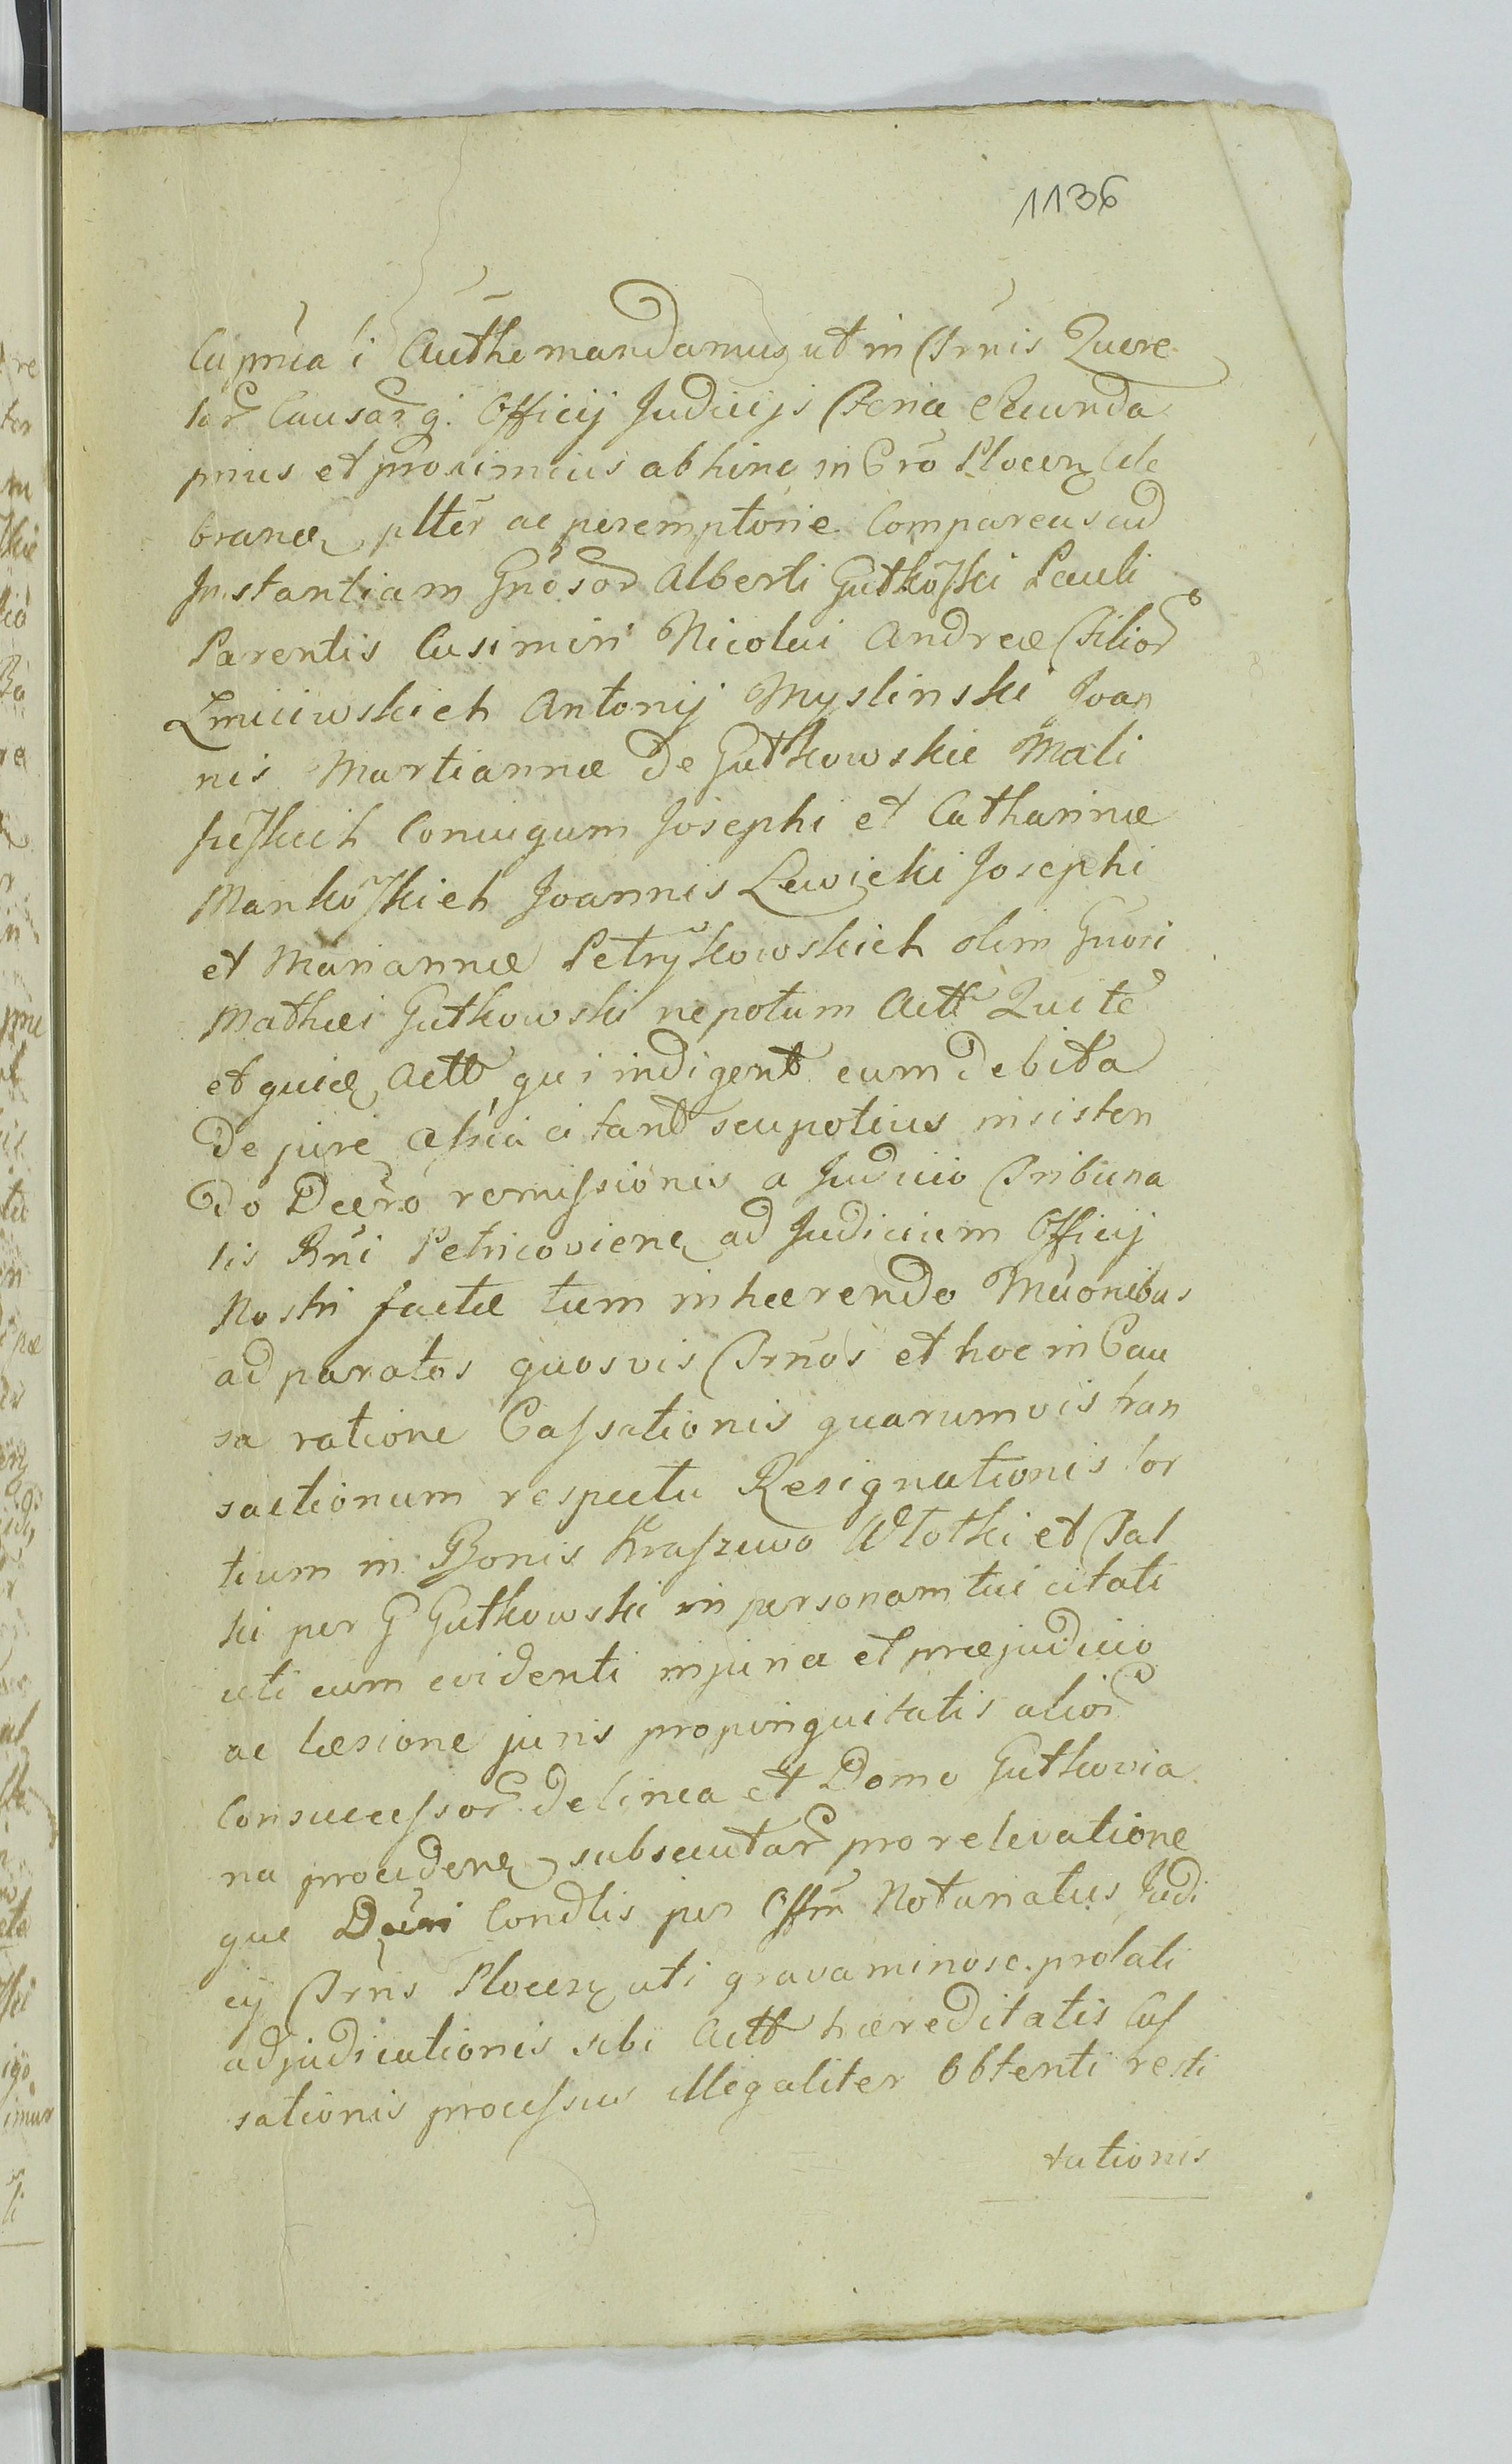 1136
mandamus ut in Trnis Quere
lar Causar q. Officij Judicijs Feria Secunda
prius et proximius abhinc in Cro Plocen Cele
bran plter ac peremptorie Compareas ad
Instantiam Gnosor Alberti Gutkoski Pauli
Parentis Casimiri Nicolai Andreæ Filior
Antonij Myslinski Joan
nis Martiannæ de Gutkowskie Mali
Coniugum Josephi et Catharinæ
Mankoskich Joannis Lewicki Josephi
et Mariannæ Petrykowskich olim Gnosi
Mathæi Gutkowski nepotum Actt Qui te
et Actt qui indigent eum debita
de jure citant seu potius insisten
do Decro remissionis a Judicio Tribuna
lis Rni Petricovien ad Judicium Officij
Nostri factæ tum inhærendo Muonibus
ad paratos quosvis Trnos et hoc in Cau
sa ratione Cassationis quarumvis tran
sactionum respectu Resignationis sor
tium in Bonis Kraszewo Włotki et Fal
ki per G Gutkowski in personam tui citati
uti cum evidenti injuria et præjudicio
ac læsione juris propinquitatis alior
Consuccessor de linea et Domo Gutkovia
na proceden subsecutar pro relevatione
que Decri Condlis per Offm Notariatus Judi
cij Trris Plocen uti gravaminose prolati
adjudicationis sibi Actt hæreditatis Cas
sationis processus illegaliter obtenti resti
tationis